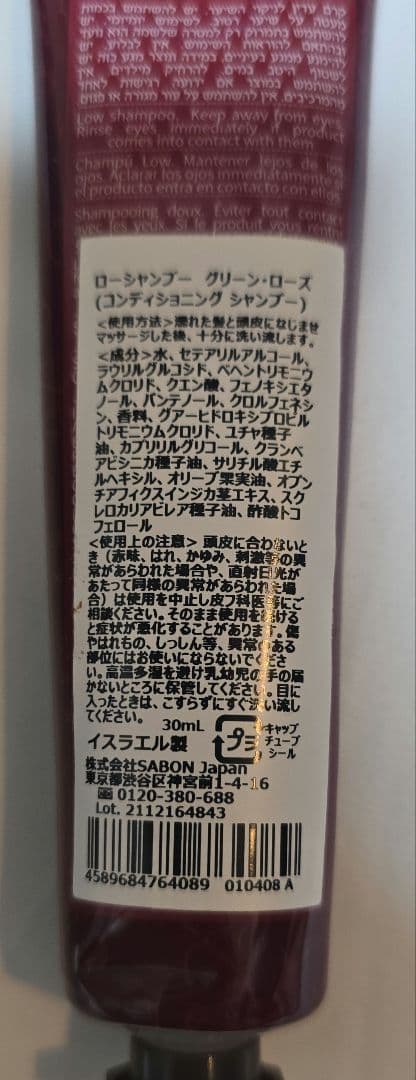 קרם עדין לניקוי השיער. יש להשתמש בכמות
מעטה על שיער רטוב. לשימוש חיצוני. יש
להשתמש בתמרוק רק למטרה שלשמה הוא נועד
ובהתאם להוראות השימוש. אין לבלוע. יש
להימנע ממגע בעיניים. במידה ונוצר מגע כזה יש
לשטוף היטב במים. להרחיק מילדים. אין
להשתמש במוצר אם ידועה רגישות לאחד
ממרכיביו. אין להשתמש על עור מגורה או פגום
Low shampoo. Keep away from eyes.
Rinse eyes immediately if product
comes into contact with them
Champú Low. Mantener lejos de los
ojos. Aclarar los ojos immediátamente si
el producto entra en contacto con ellos
Shampooing doux. Éviter tout contact
avec les yeux. Si le produit vous rentre
ローシャンプー グリーン・ローズ
(コンディショニング シャンプー)
<使用方法>濡れた髪と頭皮になじませ
マッサージした後、十分に洗い流します。
<成分>水、セテアリルアルコール、
ラウリルグルコシド、ベヘントリモニウ
ムクロリド、クエン酸、フェノキシエタ
ノール、パンテノール、クロルフェネシ
ン、香料、グアーヒドロキシプロピル
トリモニウムクロリド、ユチャ種子
油、カプリリルグリコール、クランベ
アビシニカ種子油、サリチル酸エチ
ルヘキシル、オリーブ果実油、オプン
チアフィクスインジカ茎エキス、スク
レロカリアビレア種子油、酢酸トコ
フェロール
<使用上の注意> 頭皮に合わないと
き（赤味、はれ、かゆみ、刺激等の異
常があらわれた場合や、直射日光が
あたって同様の異常があらわれた場
合）は使用を中止し皮フ科医等にご
相談ください。そのまま使用を続ける
と症状が悪化することがあります。傷
やはれもの、しっしん等、異常のある
部位にはお使いにならないでくださ
い。高温多湿を避け乳幼児の手の届
かないところに保管してください。目に
入ったときは、こすらずにすぐ洗い流し
てください。
30mL
イスラエル製
プラ
キャップ
チューブ
シール
株式会社SABON Japan
東京都渋谷区神宮前1-4-16
0120-380-688
Lot. 2112164843
4589684764089 010408 A